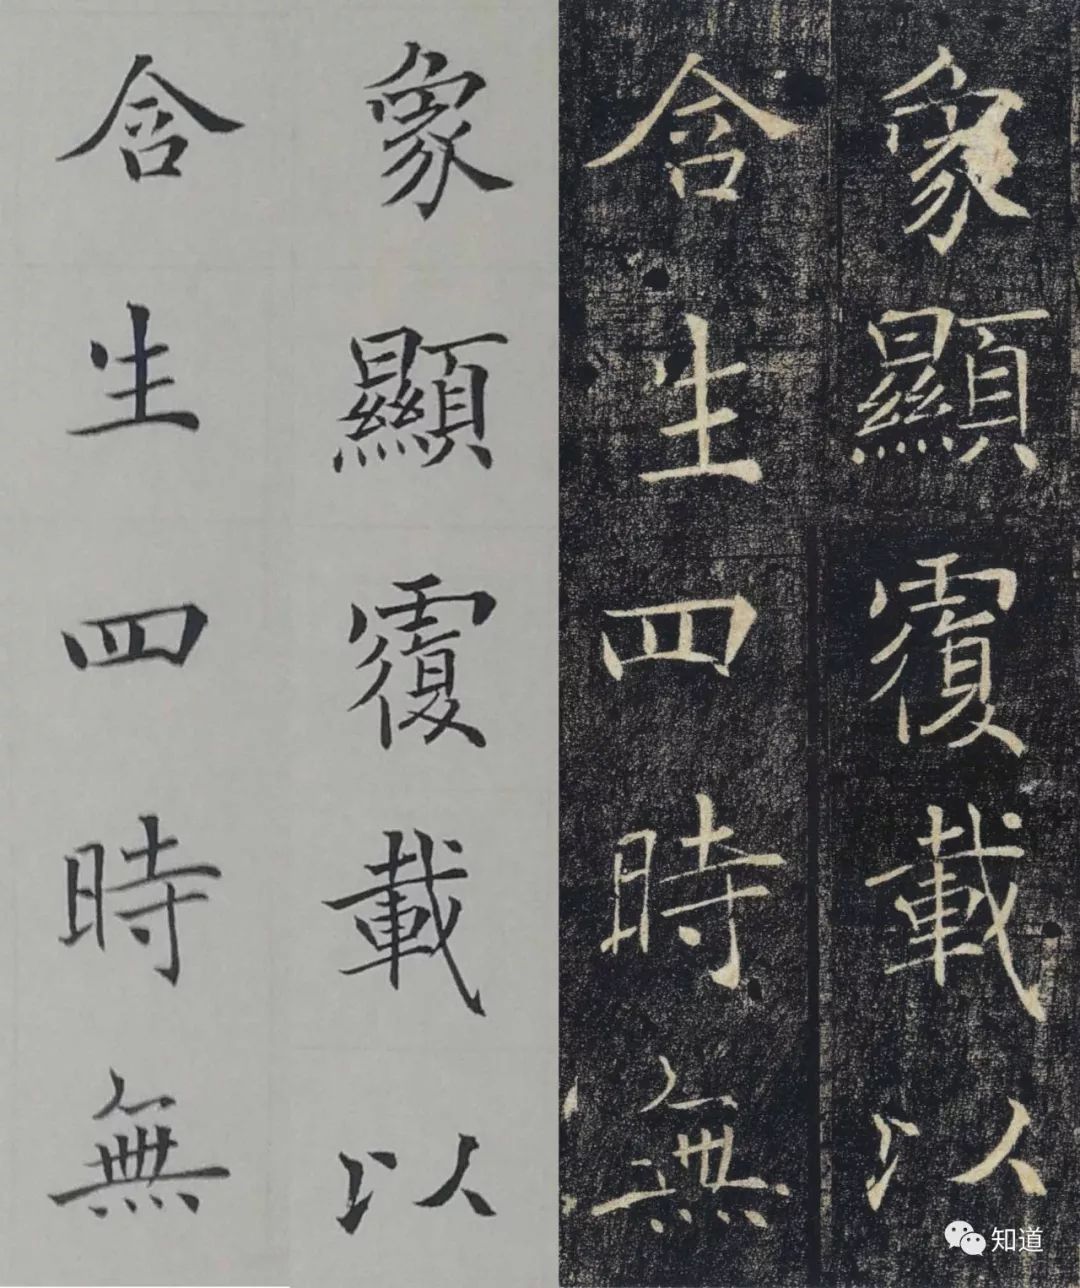 象顯覆載以
含生四時無
象顯覆載以
含生四時無
知道